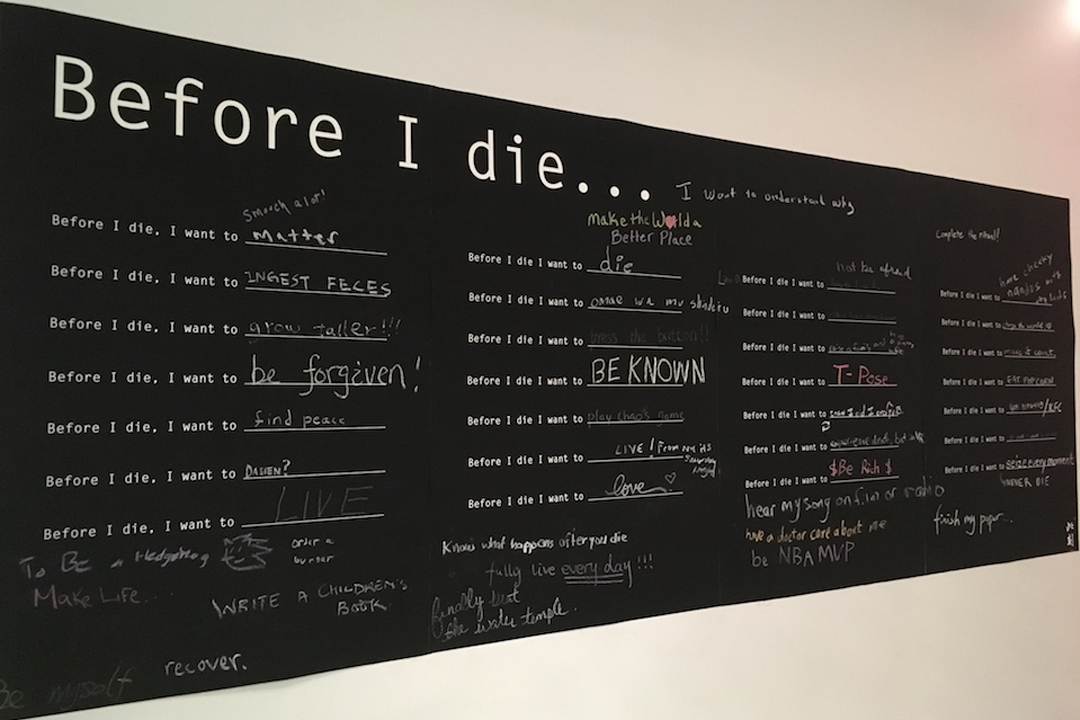 Before I die...
I want to understand why
smooch a lot!
Before I die, I want to matter
Before I die, I want to INGEST FECES
Before I die, I want to grow taller!!!
Before I die, I want to be forgiven!
Before I die, I want to find peace
Before I die, I want to DASIEN?
Before I die, I want to LIVE
To BE a Hedgehog
order a
burner
Make Life...
WRITE A CHILDREN'S
BOOK
recover.
Be myself
make the World a
Better Place
Before I die I want to die
Before I die I want to omae wa mu shindeiru
Before I die I want to press the button!!
Before I die I want to BE KNOWN
Before I die I want to play chao's game
Before I die I want to LIVE! From NY its
Saturday
Night!
Before I die I want to love
Know what happens after you die
fully live every day!!!
finally beat
the water temple.
not be afraid
Before I die I want to
Before I die I want to
Before I die I want to
Before I die I want to T-Pose
Before I die I want to
Before I die I want to experience death, but
Before I die I want to $Be Rich$
hear my song on film or radio
have a doctor care about me
be NBA MVP
Complete the ritual!
have cheeky
nandos
Before I die I want to
Before I die I want to
Before I die I want to make it count
Before I die I want to EAT POPCORN
Before I die I want to /KFC
Before I die I want to
Before I die I want to seize every moment
NEVER DIE
finish my paper...